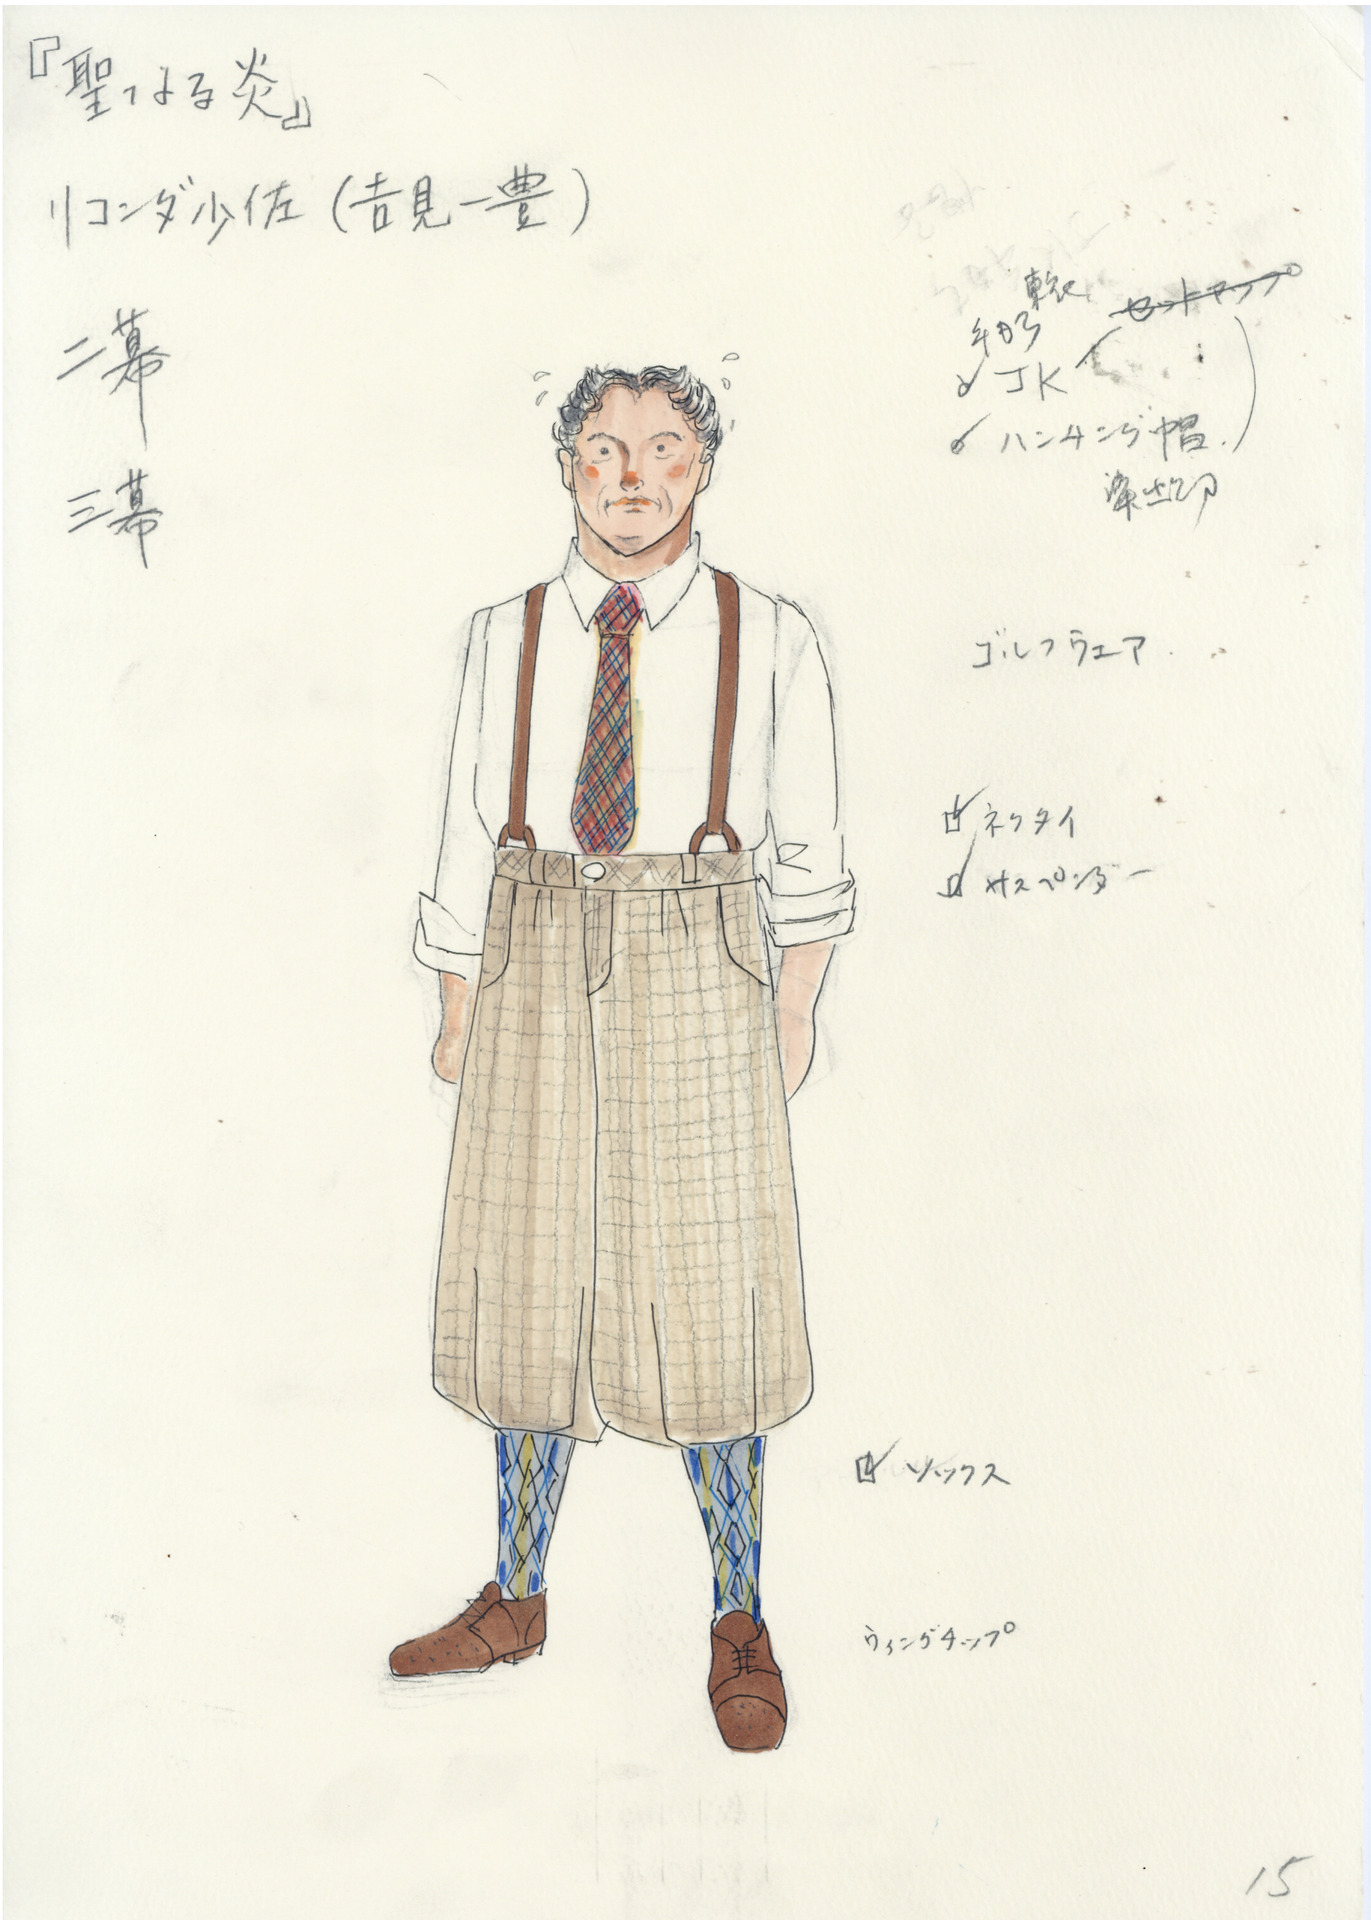 『聖なる炎』
リコンダ少佐（吉見一豊）
二幕
三幕
セットアップ
JK
ハンチング帽
ゴルフウェア
ネクタイ
サスペンダー
ソックス
ウィングチップ
15